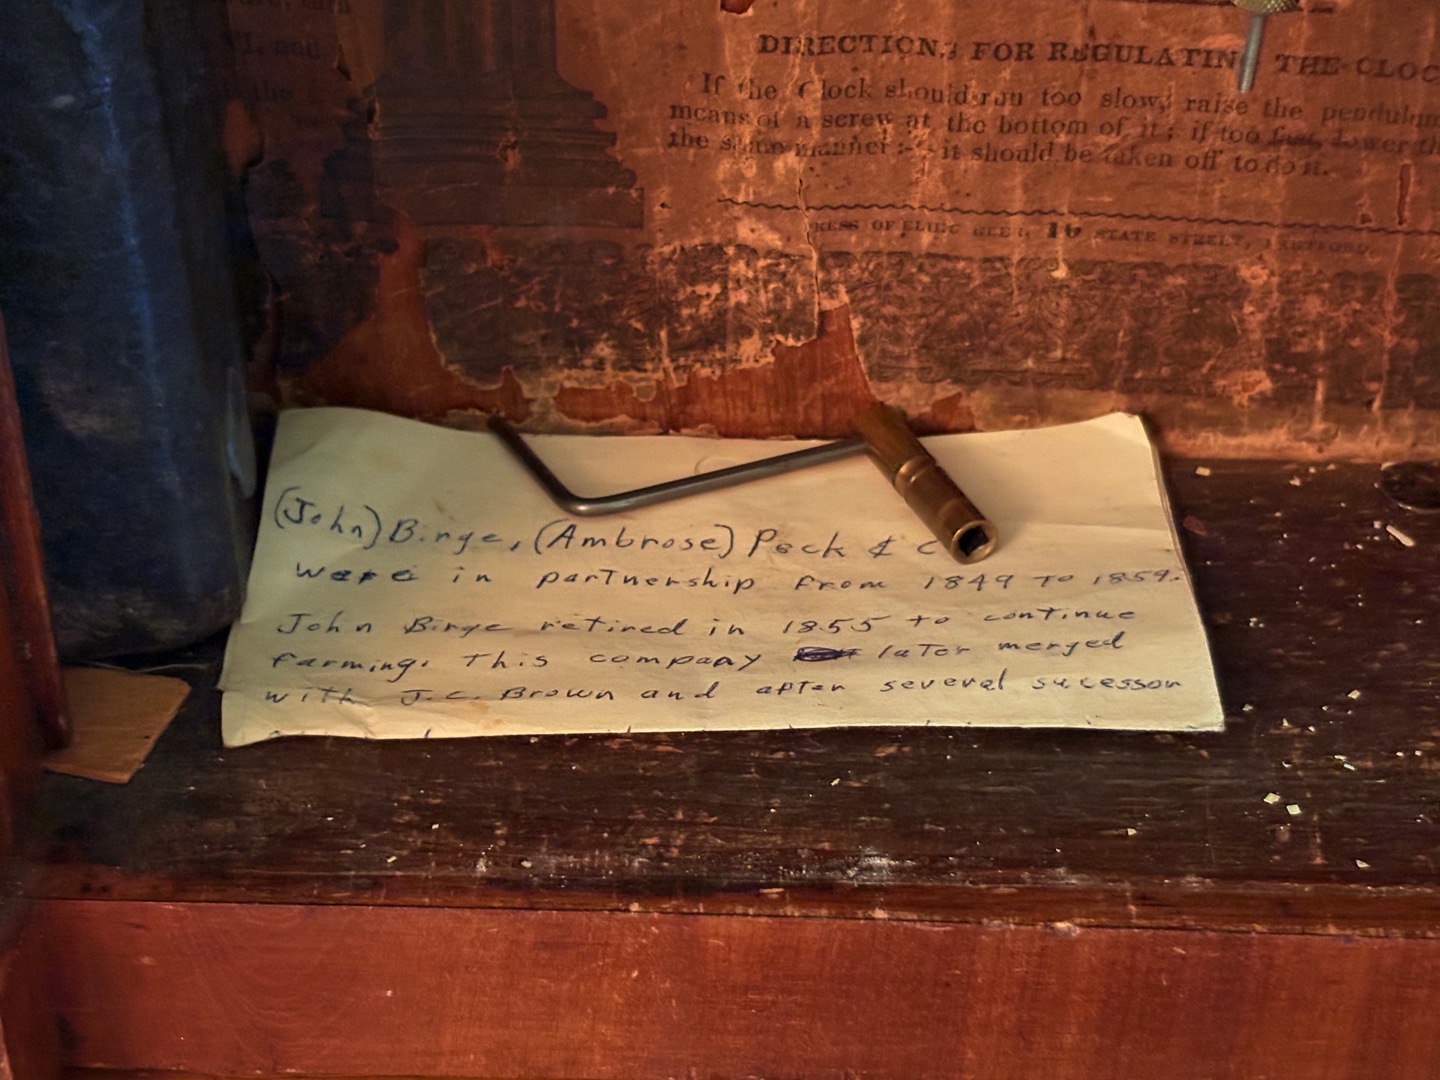 VI. and
the
DIRECTIONS FOR REGULATING THE CLOC
If the Clock should run too slow, raise the pendulum
means of a screw at the bottom of it; if too fast, lower th
the same manner:- it should be taken off to do it.
16 STATE STREET, HARTFORD.
(John) Birge, (Ambrose) Peck & C
were in partnership from 1849 to 1859.
John Birge retired in 1855 to continue
farming. This company later merged
with J.C. Brown and after several sucessor